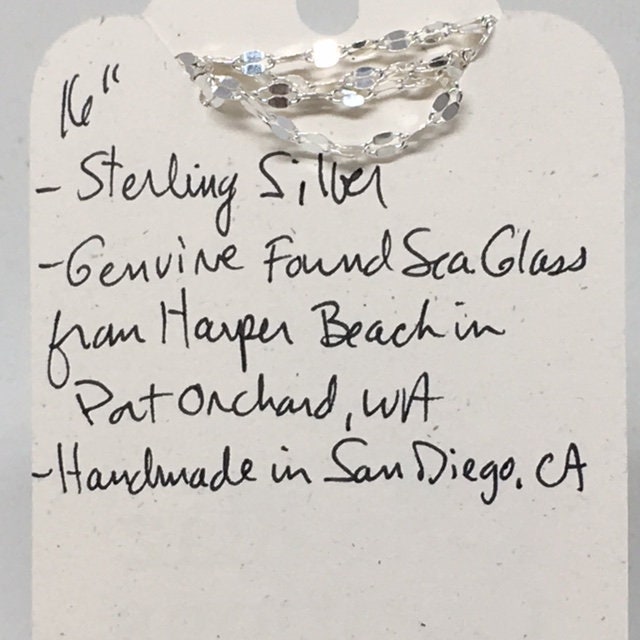 16"
- Sterling Silver
- Genuine Found Sea Glass
from Harper Beach in
Port Orchard, WA
- Handmade in San Diego, CA